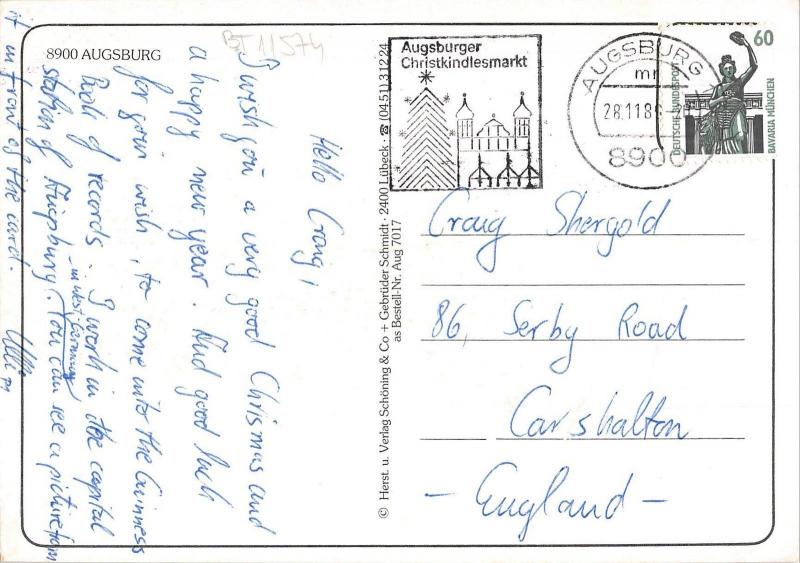 8900 AUGSBURG
BT 11574
Hello Craig,
I wish you a very good Chrismas and
a happy new year. And good luck
for your wish, to come into the Guinness
Book of records. I work in the capital
station of Augsburg. You can see a picture from
- in West-Germany
it in front of the card. Ulli
© Herst. u. Verlag Schöning & Co + Gebrüder Schmidt · 2400 Lübeck · ☎ (0451) 31224
as Bestell-Nr. Aug 7017
Augsburger
Christkindlesmarkt
AUGSBURG
mr
28.11.89
8900
60
DEUTSCHE BUNDESPOST
BAVARIA MÜNCHEN
Craig Shergold
86, Serby Road
Carshalton
- England -